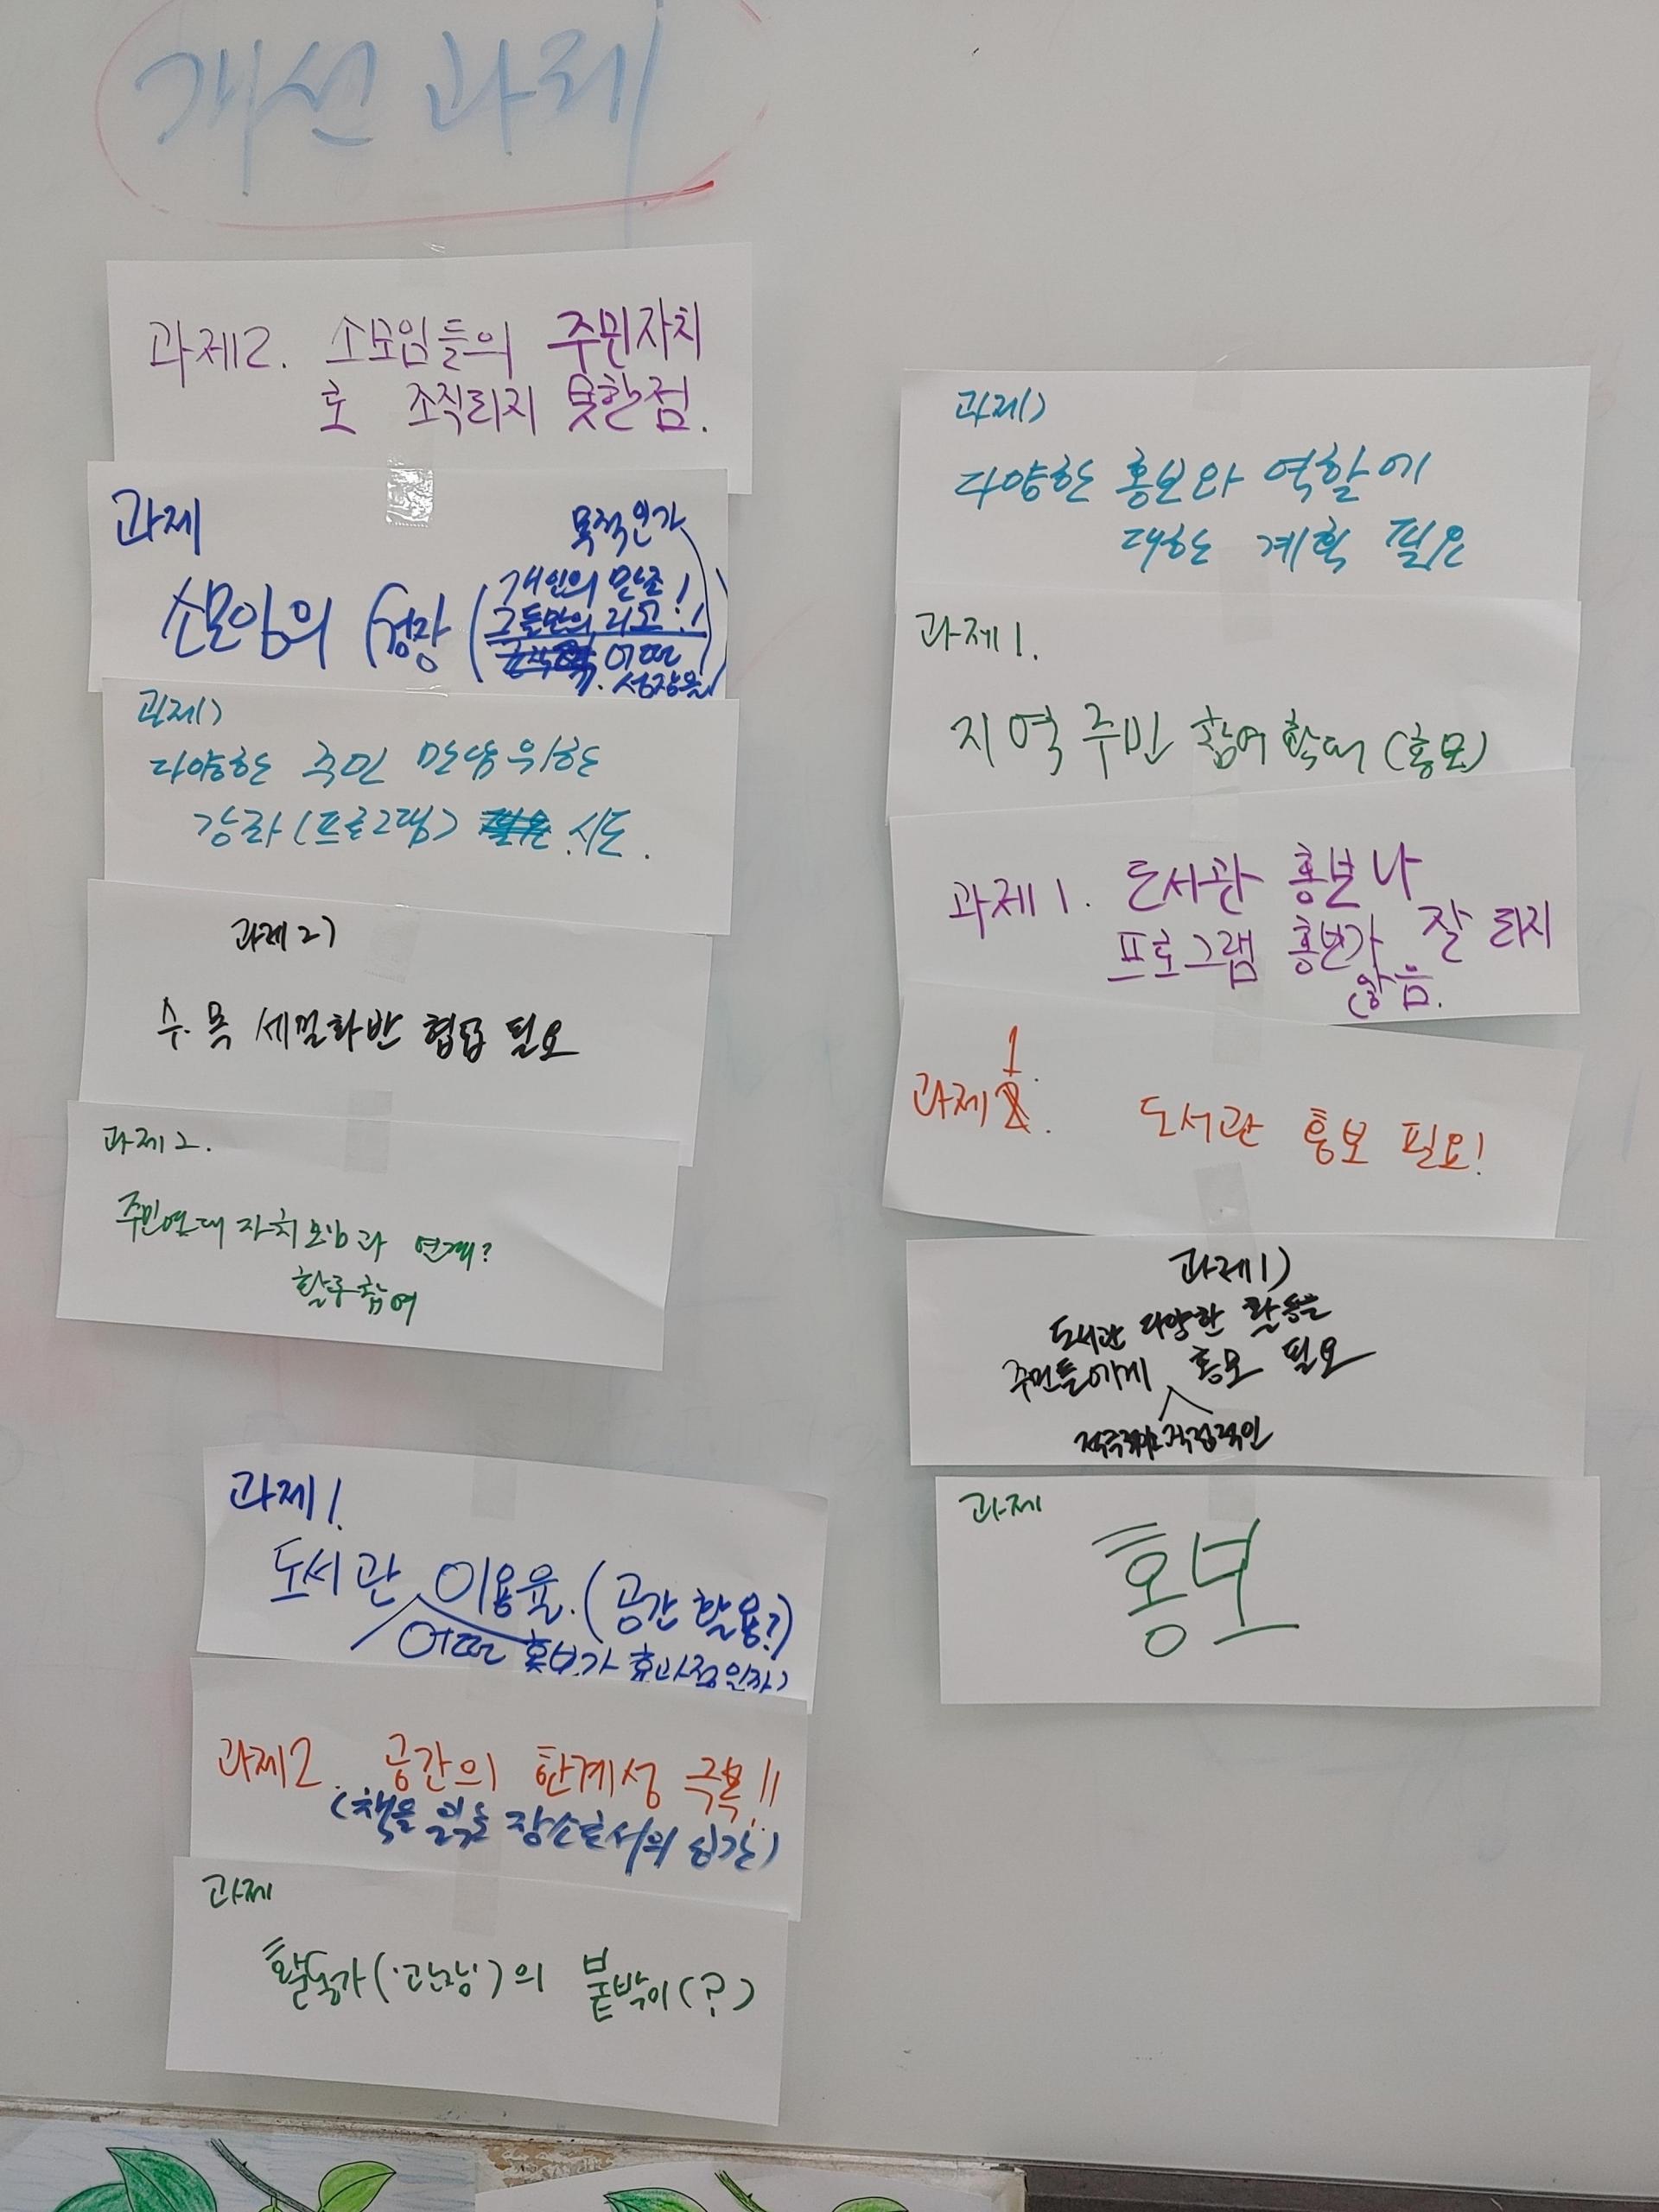 개선 과제
과제2. 소모임들의 주민자치
로 조직되지 못한점.
과제
목적인가
소모임의 성장 (개인의 만족!
그들만의 리그!!
어떤
성장을)
과제)
다양한 주민 만남 위한
강좌(프로그램) 시도.
과제2)
수.목 세밀화반 협업 필요
과제2.
주민연대 자치모임과 연계?
활동참여
과제1.
도서관 이용율.(공간 활용?)
어떤 홍보가 효과적인가)
과제2. 공간의 한계성 극복!!
(책을 읽는 장소로서의 공간)
과제
활동가('관장')의 붙박이(?)
과제)
다양한 홍보와 역할에
대한 계획 필요
과제1.
지역주민 참여 확대 (홍보)
과제1. 도서관 홍보나
프로그램 홍보가 잘 되지
않음.
과제1. 도서관 홍보 필요!
과제1)
도서관 다양한 활동을
주민들에게 홍보 필요
직접적인
과제
홍보